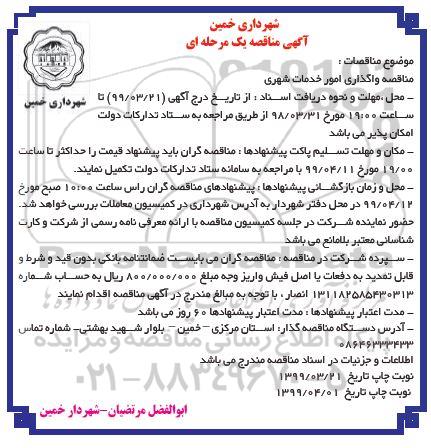 شهرداری خمین
آگهی مناقصه یک مرحله ای
شهرداری خمین
موضوع مناقصات :
مناقصه واگذاری امور خدمات شهری
- محل ،مهلت و نحوه دریافت اسناد : از تاریخ درج آگهی (۹۹/۰۳/۲۱) تا
ساعت ۱۹:۰۰ مورخ ۹۸/۰۳/۳۱ از طریق مراجعه به ستاد تدارکات دولت
امکان پذیر می باشد
- مکان و مهلت تسلیم پاکت پیشنهادها : مناقصه گران باید پیشنهاد قیمت را حداکثر تا ساعت
۱۹:۰۰ مورخ ۹۹/۰۴/۱۱ با مراجعه به سامانه ستاد تدارکات دولت تکمیل نمایند.
- محل و زمان بازگشائی پیشنهادها : پیشنهادهای مناقصه گران راس ساعت ۱۰:۰۰ صبح مورخ
۹۹/۰۴/۱۲ در محل دفتر شهردار به آدرس شهرداری در کمیسیون معاملات بررسی خواهد شد.
حضور نماینده شرکت در جلسه کمیسیون مناقصه با ارائه معرفی نامه رسمی از شرکت و کارت
شناسائی معتبر بلامانع می باشد
- سپرده شرکت در مناقصه : مناقصه گران می بایست ضمانتنامه بانکی بدون قید و شرط و
قابل تمدید به دفعات یا اصل فیش واریز وجه مبلغ ۸۰۰/۰۰۰/۰۰۰ ریال به حساب شماره
۱۳۱۱۸۲۵۸۵۴۳۰۳۱۳ انصار ، با توجه به مبالغ مندرج در آگهی مناقصه اقدام نمایند
- مدت اعتبار پیشنهادها : مدت اعتبار پیشنهادها ۶۰ روز می باشد
- آدرس دستگاه مناقصه گذار: استان مرکزی – خمین – بلوار شهید بهشتی- شماره تماس
۰۸۶۴۶۲۳۳۴۳۳
اطلاعات و جزئیات در اسناد مناقصه مندرج می باشد
نوبت چاپ تاریخ ۱۳۹۹/۰۳/۲۱
نوبت چاپ تاریخ ۱۳۹۹/۰۴/۰۱
ابوالفضل مرتضیان-شهردار خمین
۰۲۱-۸۸۳۴۹۶۷۰-۵